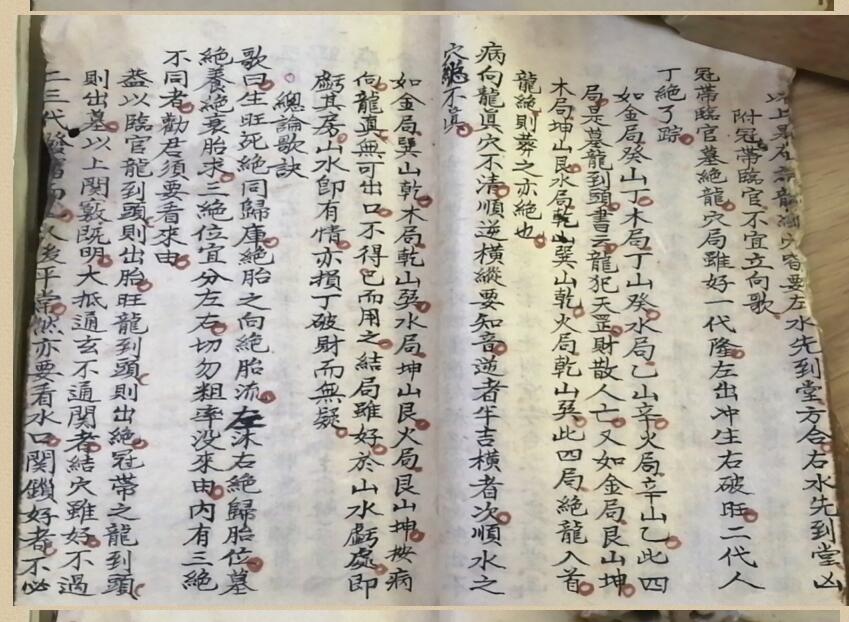 以上是在墓龍絕穴皆要左水先到堂方合右水先到堂凶
附冠帶臨官不宜立向歌
冠帶臨官墓絕龍穴局雖好一代隆左出冲生右破旺二代人
丁絕了踪
如金局癸山丁木局丁山癸水局乙山辛火局辛山乙此四
局是墓龍到頭書云龍犯天罡財散人亡又如金局艮山坤
木局坤山艮水局乾山巽山乾火局乾山巽此四局絕龍入首
龍絕則葬之亦絕也
病向龍真穴不清順逆橫縱要知音逆者半吉橫者次順水之
穴絕不真
如金局巽山乾木局乾山巽水局坤山艮火局艮山坤按病
向龍真無可出口不得已而用之結局雖好於山水虧處即
虧其房山水即有情亦損丁破財而無疑
總論歌訣
歌曰生旺死絕同歸庫絕胎之向絕胎流左沐右絕歸胎位墓
絕養絕衰胎求三絕位宜分左右切勿粗率沒來由內有三絕
不同者勸君須要看來由
蓋以臨官龍到頭則出胎旺龍到頭則出絕冠帶之龍到頭
則出墓以上関竅既明大抵通玄不通関者結穴雖好不過
二三代發富而人後平常然亦要看水口関鎖好者不必